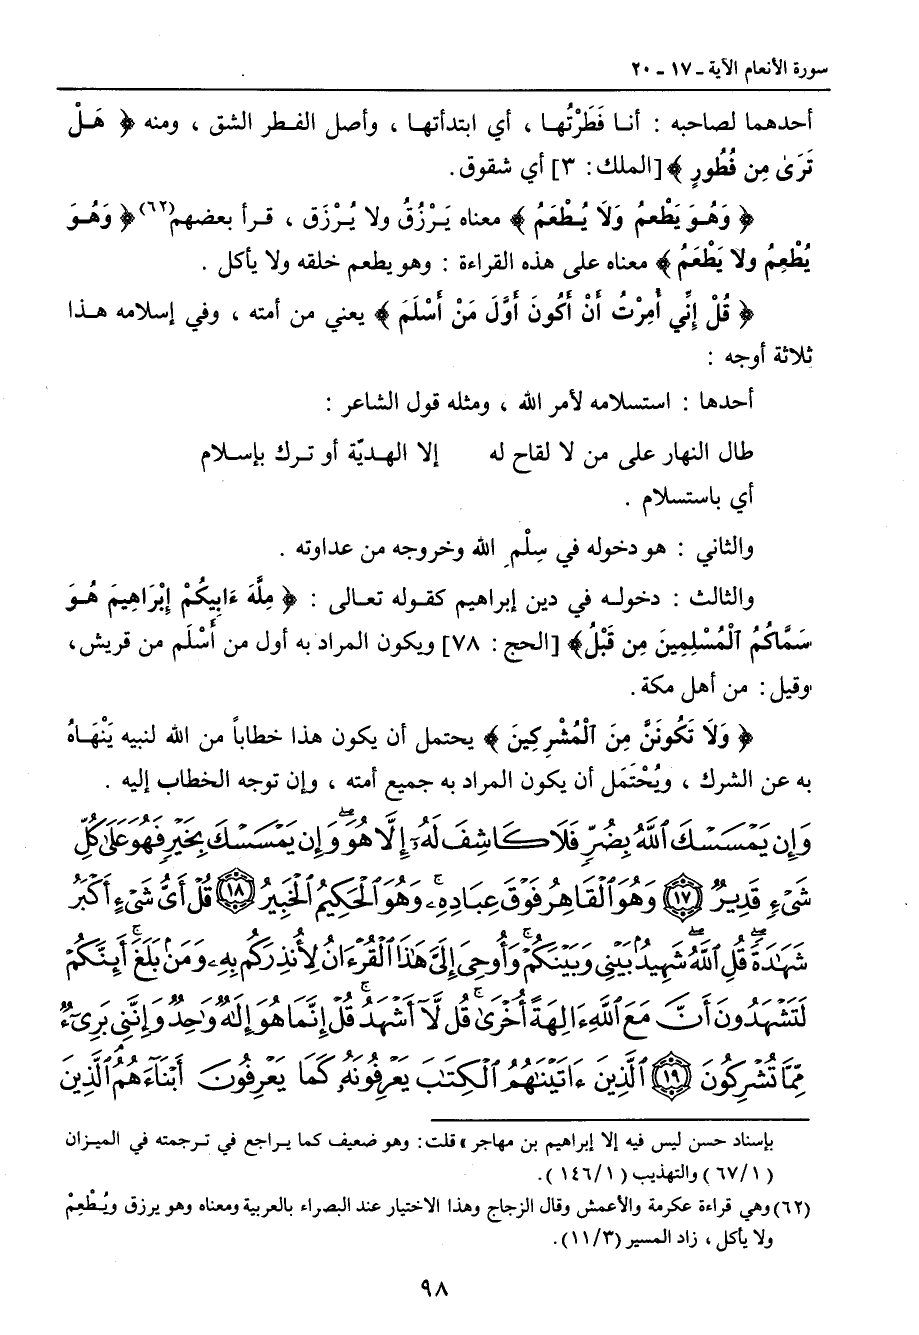 سورة الأنعام الآية ـ ١٧ ـ ٢٠
أحدهما لصاحبه : أنا فَطَرْتُها ، أي ابتدأتها ، وأصل الفطر الشق ، ومنه ﴿ هَلْ
تَرَىٰ مِن فُطُورٍ ﴾ [الملك: ٣] أي شقوق.
﴿ وَهُوَ يَطْعِمُ وَلَا يُطْعَمُ ﴾ معناه يَرْزُقُ ولا يُرْزَق ، قرأ بعضهم(٦٢) ﴿ وَهُوَ
يُطْعِمُ ولا يَطْعَمُ ﴾ معناه على هذه القراءة : وهو يطعم خلقه ولا يأكل .
﴿ قُلْ إِنِّي أُمِرْتُ أَنْ أَكُونَ أَوَّلَ مَنْ أَسْلَمَ ﴾ يعني من أمته ، وفي إسلامه هذا
ثلاثة أوجه :
أحدها : استسلامه لأمر الله ، ومثله قول الشاعر :
طال النهار على من لا لقاح له إلا الهديّة أو ترك بإسلام
أي باستسلام .
والثاني : هو دخوله في سِلْمِ الله وخروجه من عداوته .
والثالث : دخوله في دين إبراهيم كقوله تعالى : ﴿ مِلَّهَ ءَابِيكُمْ إِبْرَاهِيمَ هُوَ
سَمَّاكُمُ ٱلْمُسْلِمِينَ مِن قَبْلُ﴾ [الحج : ٧٨] ويكون المراد به أول من أَسْلَم من قريش،
وقيل: من أهل مكة.
﴿ وَلَا تَكُونَنَّ مِنَ ٱلْمُشْرِكِينَ ﴾ يحتمل أن يكون هذا خطاباً من الله لنبيه يَنْهَاهُ
به عن الشرك ، ويُحْتَمَل أن يكون المراد به جميع أمته ، وإن توجه الخطاب إليه .
وَإِن يَمْسَسْكَ ٱللَّهُ بِضُرٍّ فَلَا كَاشِفَ لَهُۥٓ إِلَّا هُوَۖ وَإِن يَمْسَسْكَ بِخَيْرٍ فَهُوَ عَلَىٰ كُلِّ
شَىْءٍ قَدِيرٌ ١٧ وَهُوَ ٱلْقَاهِرُ فَوْقَ عِبَادِهِۦۚ وَهُوَ ٱلْحَكِيمُ ٱلْخَبِيرُ ١٨ قُلْ أَىُّ شَىْءٍ أَكْبَرُ
شَهَٰدَةًۖ قُلِ ٱللَّهُۖ شَهِيدٌۢ بَيْنِى وَبَيْنَكُمْۚ وَأُوحِىَ إِلَىَّ هَٰذَا ٱلْقُرْءَانُ لِأُنذِرَكُم بِهِۦ وَمَنۢ بَلَغَۚ أَئِنَّكُمْ
لَتَشْهَدُونَ أَنَّ مَعَ ٱللَّهِ ءَالِهَةً أُخْرَىٰۚ قُل لَّآ أَشْهَدُۚ قُلْ إِنَّمَا هُوَ إِلَٰهٌ وَٰحِدٌ وَإِنَّنِى بَرِىٓءٌ
مِّمَّا تُشْرِكُونَ ١٩ ٱلَّذِينَ ءَاتَيْنَٰهُمُ ٱلْكِتَٰبَ يَعْرِفُونَهُۥ كَمَا يَعْرِفُونَ أَبْنَآءَهُمُۘ ٱلَّذِينَ
بإسناد حسن ليس فيه إلا إبراهيم بن مهاجر » قلت: وهو ضعيف كما يراجع في ترجمته في الميزان
(٦٧/١) والتهذيب (١٤٦/١).
(٦٢) وهي قراءة عكرمة والأعمش وقال الزجاج وهذا الاختيار عند البصراء بالعربية ومعناه وهو يرزق ويُطْعِمْ
ولا يأكل ، زاد المسير (١١/٣).
٩٨